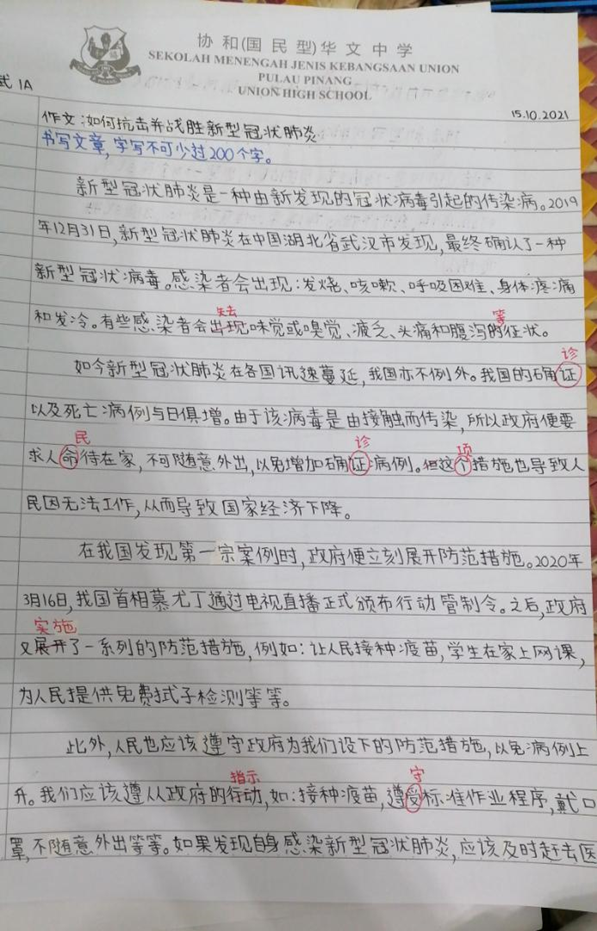 协和(国民型)华文中学
SEKOLAH MENENGAH JENIS KEBANGSAAN UNION
PULAU PINANG
UNION HIGH SCHOOL
式 1A
15.10.2021
作文:如何抗击并战胜新型冠状肺炎
书写文章,字写不可少过200个字。
新型冠状肺炎是一种由新发现的冠状病毒引起的传染病。2019
年12月31日,新型冠状肺炎在中国湖北省武汉市发现,最终确认了一种
新型冠状病毒。感染者会出现:发烧、咳嗽、呼吸困难、身体疼痛
失去 等
和发冷。有些感染者会出现味觉或嗅觉、疲乏、头痛和腹泻的症状。
诊
如今新型冠状肺炎在各国讯速蔓延,我国亦不例外。我国的确证
以及死亡病例与日俱增。由于该病毒是由接触而传染,所以政府便要
民 诊 项
求人命待在家,不可随意外出,以免增加确证病例。但这个措施也导致人
民因无法工作,从而导致国家经济下降。
在我国发现第一宗案例时,政府便立刻展开防范措施。2020年
3月16日,我国首相慕尤丁通过电视直播正式颁布行动管制令。之后,政府
实施
又展开了一系列的防范措施,例如:让人民接种疫苗,学生在家上网课,
为人民提供免费拭子检测等等。
此外,人民也应该遵守政府为我们设下的防范措施,以免病例上
指示 守
升。我们应该遵从政府的行动,如:接种疫苗,遵受标准作业程序,戴口
罩,不随意外出等等。如果发现自身感染新型冠状肺炎,应该及时赶去医